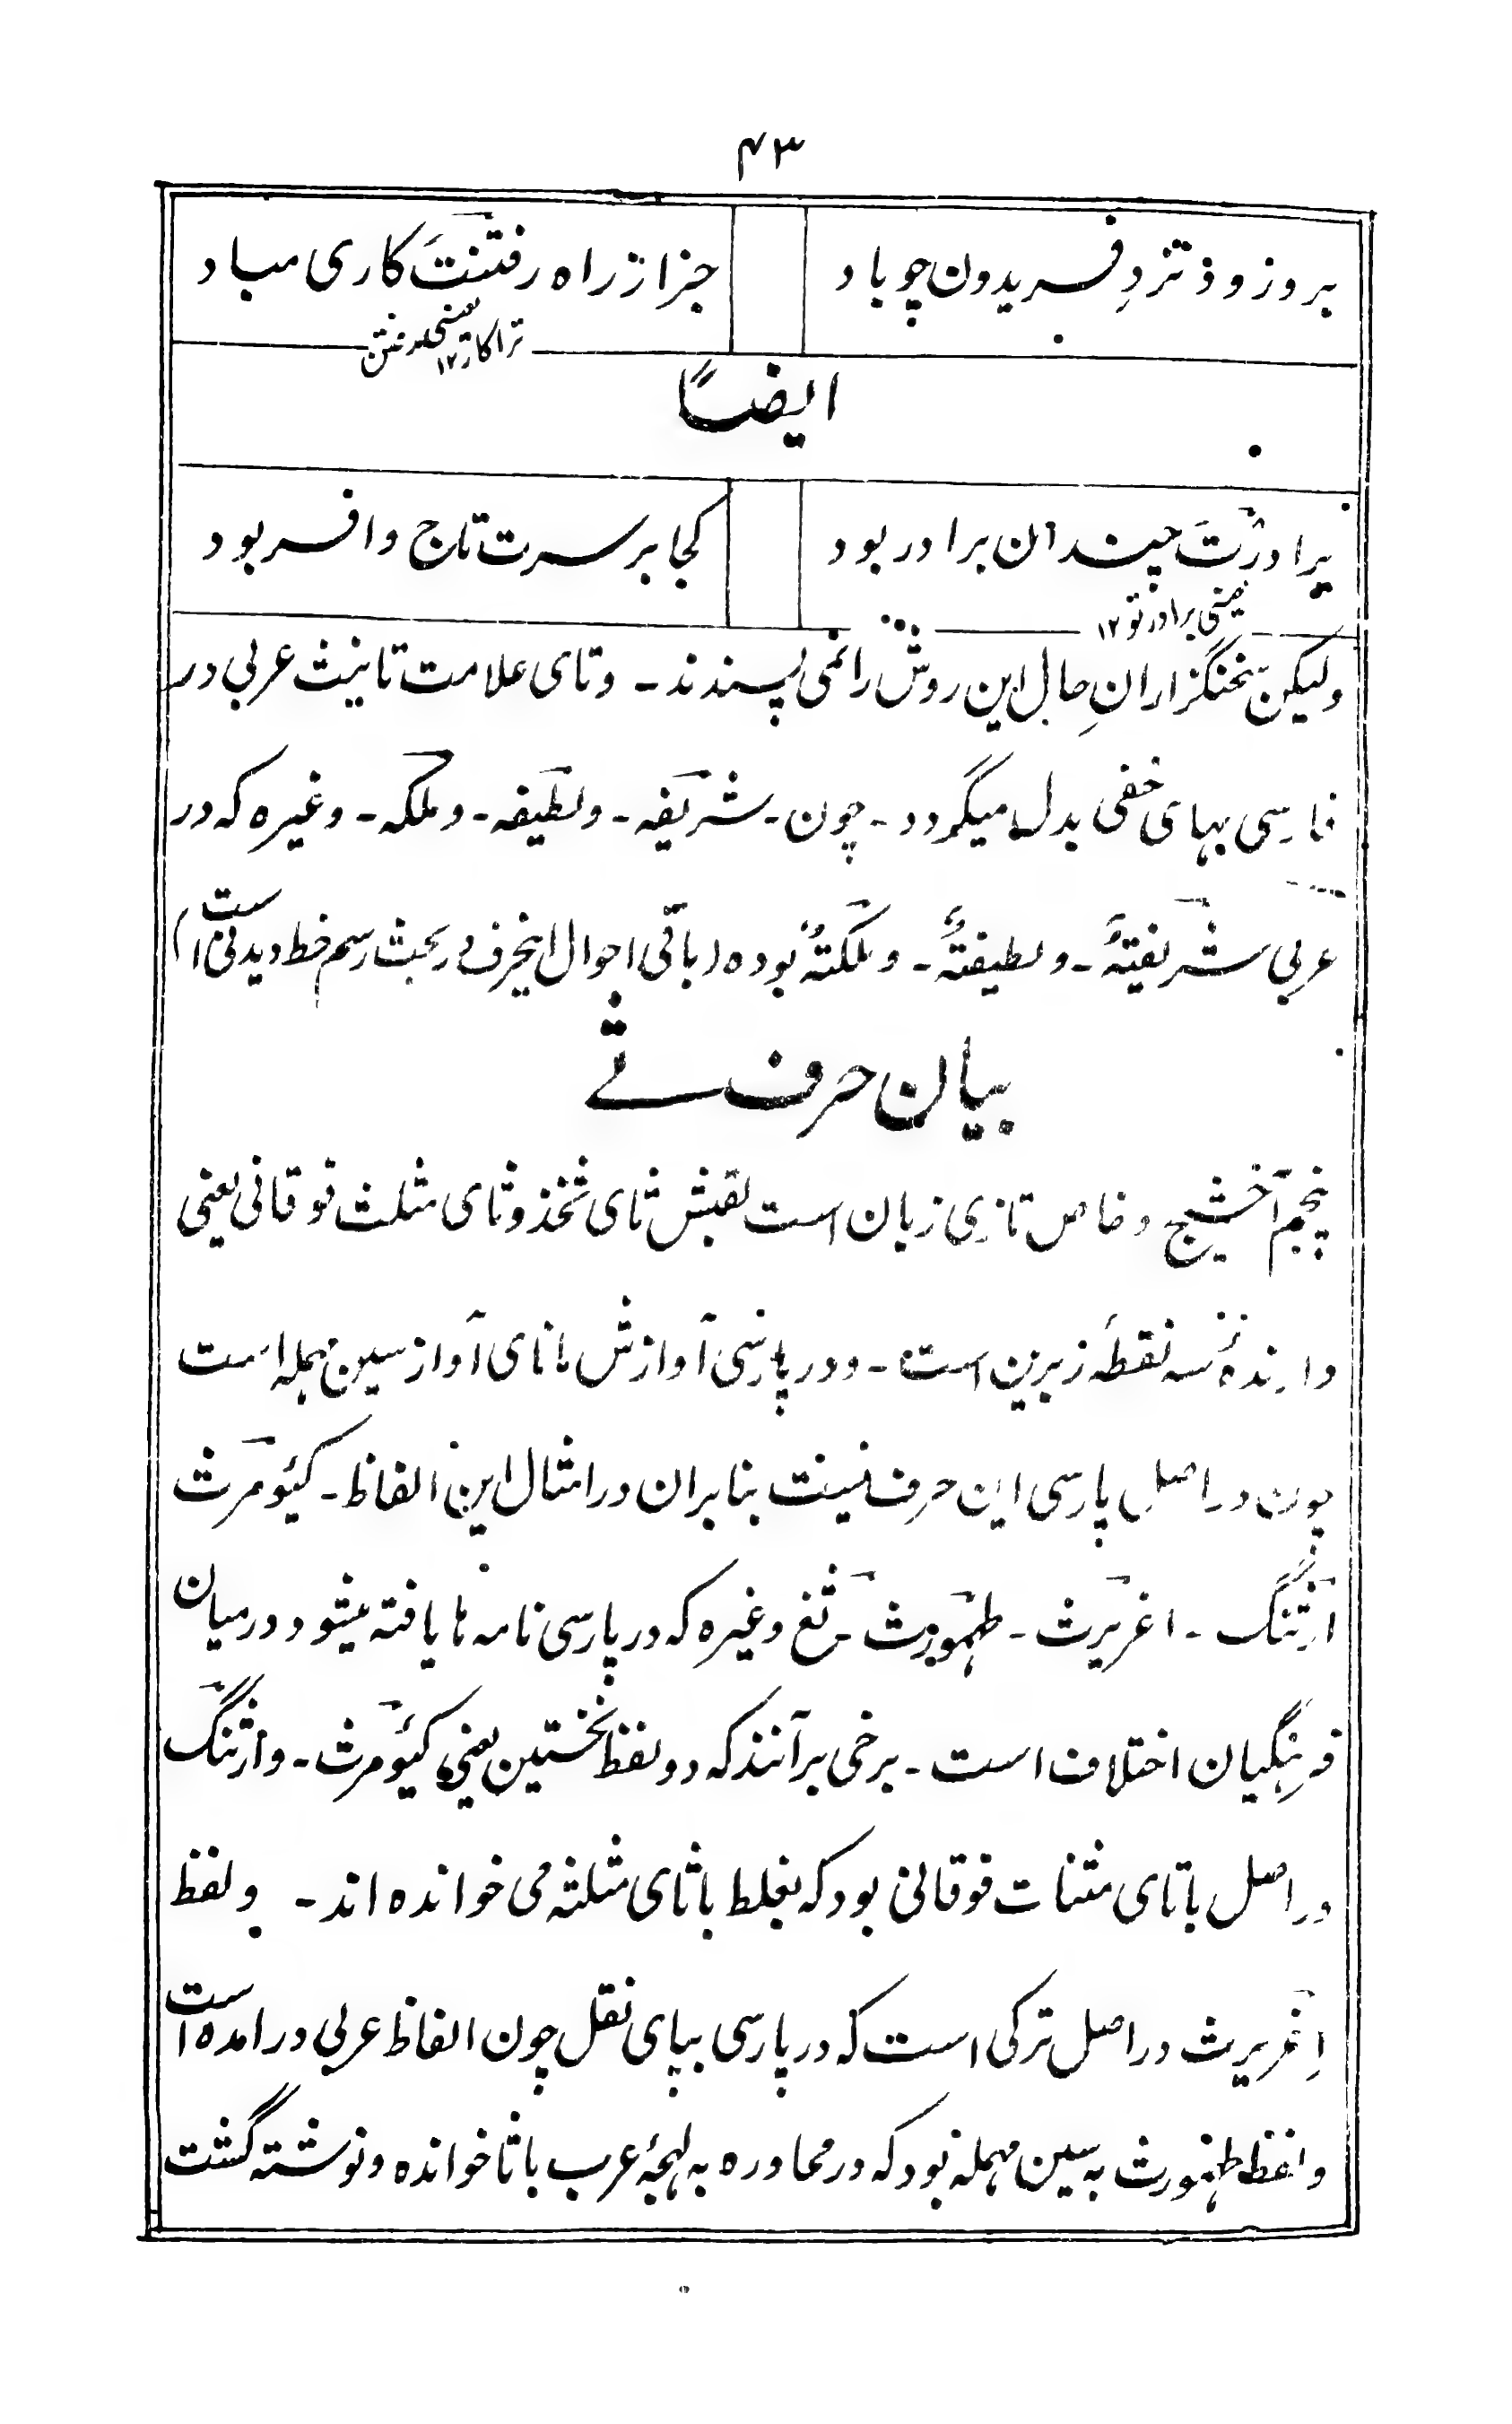 ۴۳
برو زود نزدِ فریدون چو باد
جز از راه رفتنتَ کاری مباد
یعنی جز رفتن
ترا کار ۱۲
ایضاً
برادرْتَ چندان برادر بود
کجا بر سرت تاج و افسر بود
یعنی برادر تو ۱۲
ولیکن سخنگزارانِ حال این روش را نمی پسندند ـ و تای علامت تانیث عربی در
فارسی بهای خفی بدل میگردد ـ چون ـ شریفه ـ و لطیفه ـ و ملکه ـ و غیره که در
عربی شریفتهٌ ـ و لطیفتهٌ ـ و ملکتهٌ بوده (باقی احوال اینحرف در بحث رسم خط دیدنی است)
بیان حرف ثے
پنجم آخشیج و خاص تازی زبان است لقبش ثای ثخذ و ثای مثلث فوقانی یعنی
دارندهٔ سه نقطهٔ زبرین است ـ و در پارسی آوازش مانای آواز سین مهمله است
چون در اصل پارسی این حرف نیست بنابران در امثال این الفاظ ـ کیُومَرث
ارثنگ ـ اغریرث ـ طهمورث ـ ثغ وغیره که در پارسی نامه ها یافته میشود درمیان
فرهنگیان اختلاف است ـ برخی برآنند که دو لفظ نخستین یعنی کیُومرث ـ و ارثنگ
در اصل با تای مثنات فوقانی بود که بغلط با ثای مثلثه می خوانده اند ـ و لفظ
اِغریرث در اصل ترکی است که در پارسی بپای نقل چون الفاظ عربی درامده است
و لفظ طهمورث به سین مهمله بود که در محاوره به لهجهٔ عرب با ثا خوانده و نوشته گشت